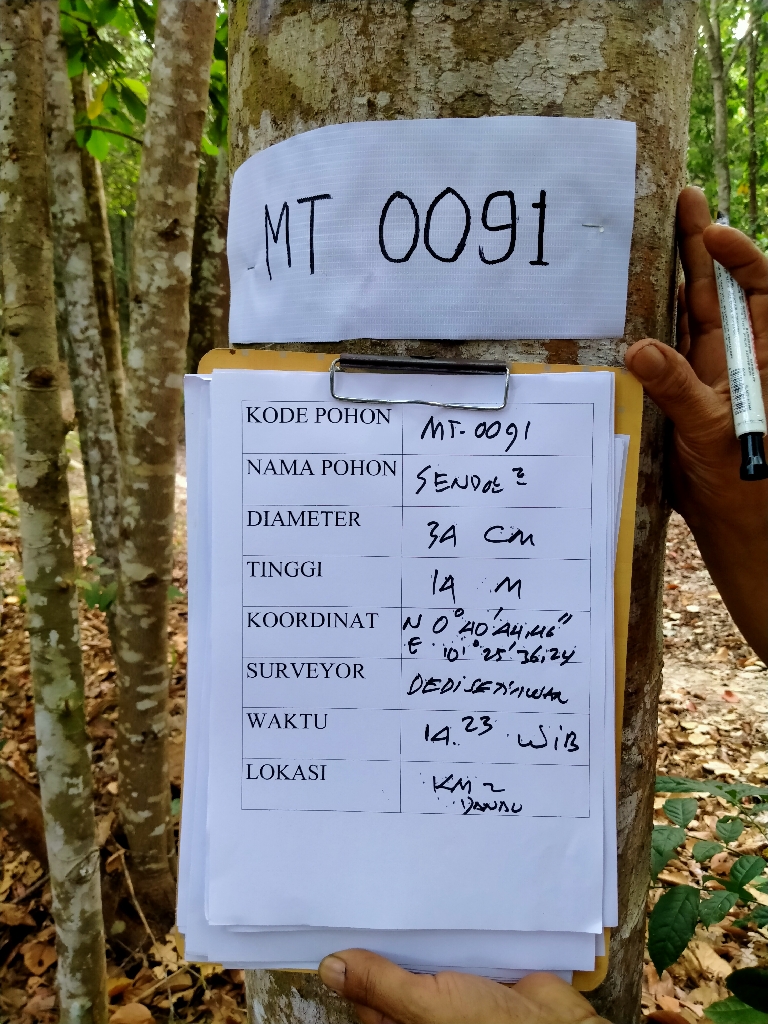 MT 0091
KODE POHON MT-0091
NAMA POHON
DIAMETER 34 CM
TINGGI 14 M
KOORDINAT N 0° 40' 44,46"
E 101° 25' 36,24
SURVEYOR DEDI SETIAWAN
WAKTU 14.23 WIB
LOKASI KM 2
DANAU